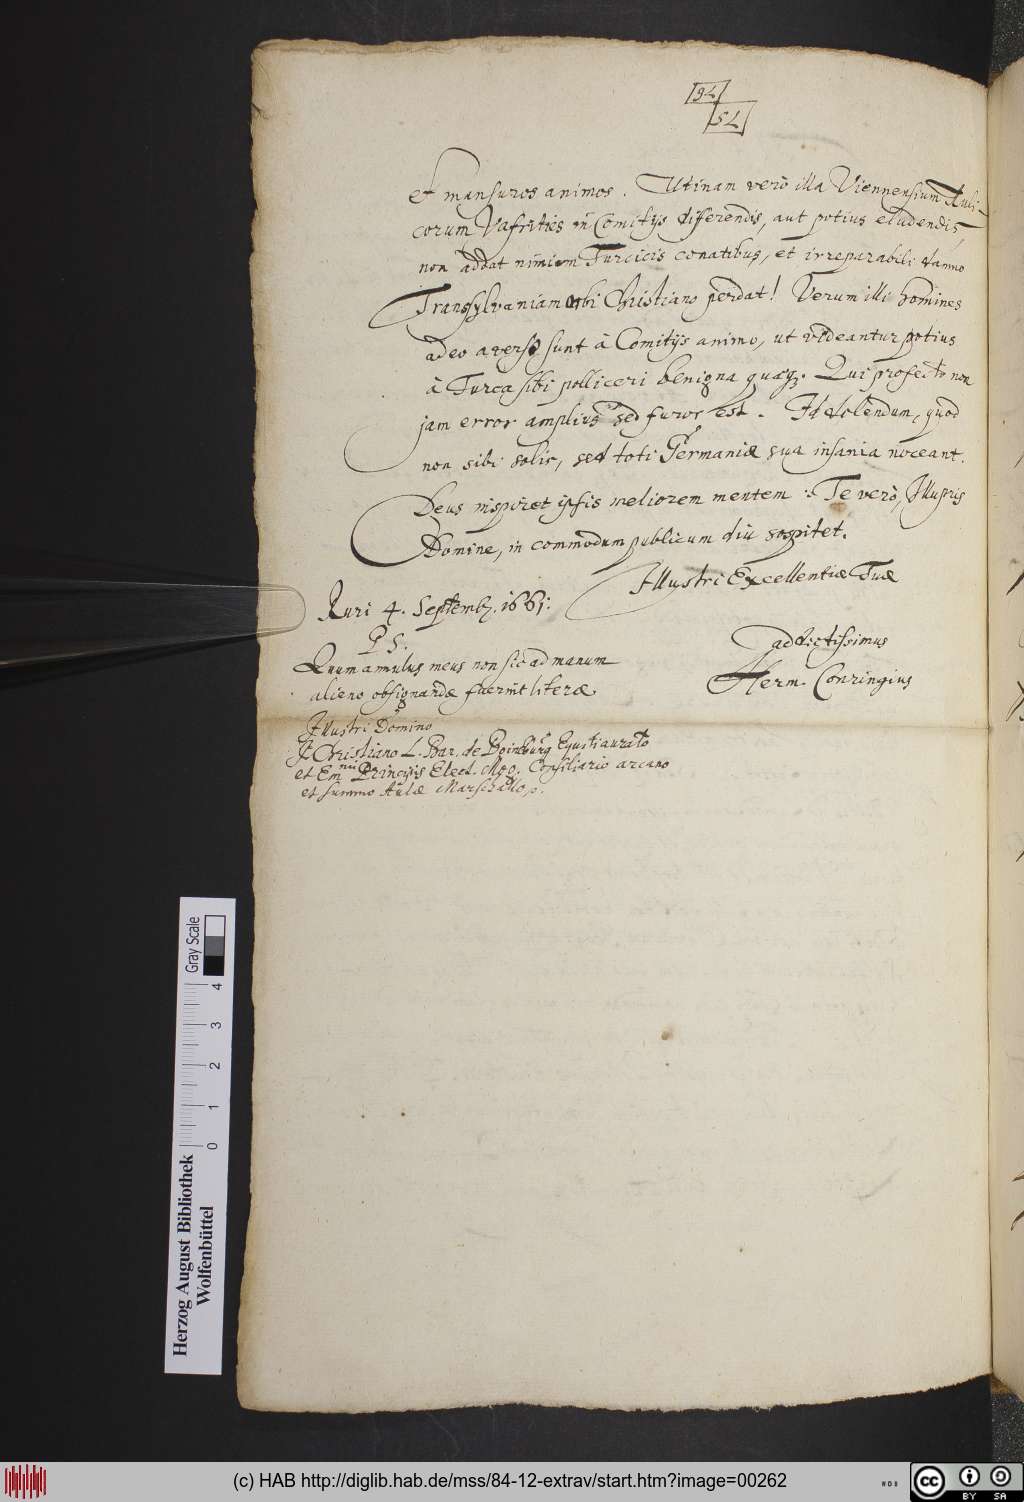 94
75
et mansuros animos. Utinam verò illa Viennensium Auli-
corum Vafrities in Comitijs differendis, aut potius eludendis,
non addat nimium Turcicis conatibus, et irreparabili damno
Transylvaniam orbi Christiano perdat! Verum illi homines
adeo averso sunt à Comitijs animo, ut videantur potius
à Turca sibi polliceri benigna quæq. Qui profecto non
jam error amplius sed furor est. Id dolendum, quod
non sibi solis, sed toti Germaniæ sua insania noceant.
Deus inspiret ipsis meliorem mentem: Te verò, Illustris
Domine, in commodum publicum diu sospitet.
Illustri Excellentiæ Tuæ
Ruri 4. Septemb. 1661.
addictissimus
P S.
Herm. Conringius
Quum amulus meus non sic ad manum
alieno obsignandæ fuerint literæ
Illustri Domino
J. Christiano L. Bar. de Boineburg Equiti aurato
et Em Principis Elect. Mog. Consiliario arcano
et summo Aulæ Marschallo p.
Herzog August Bibliothek
Wolfenbüttel
0 1 2 3 4
Gray Scale
(c) HAB http://diglib.hab.de/mss/84-12-extrav/start.htm?image=00262
cc BY SA